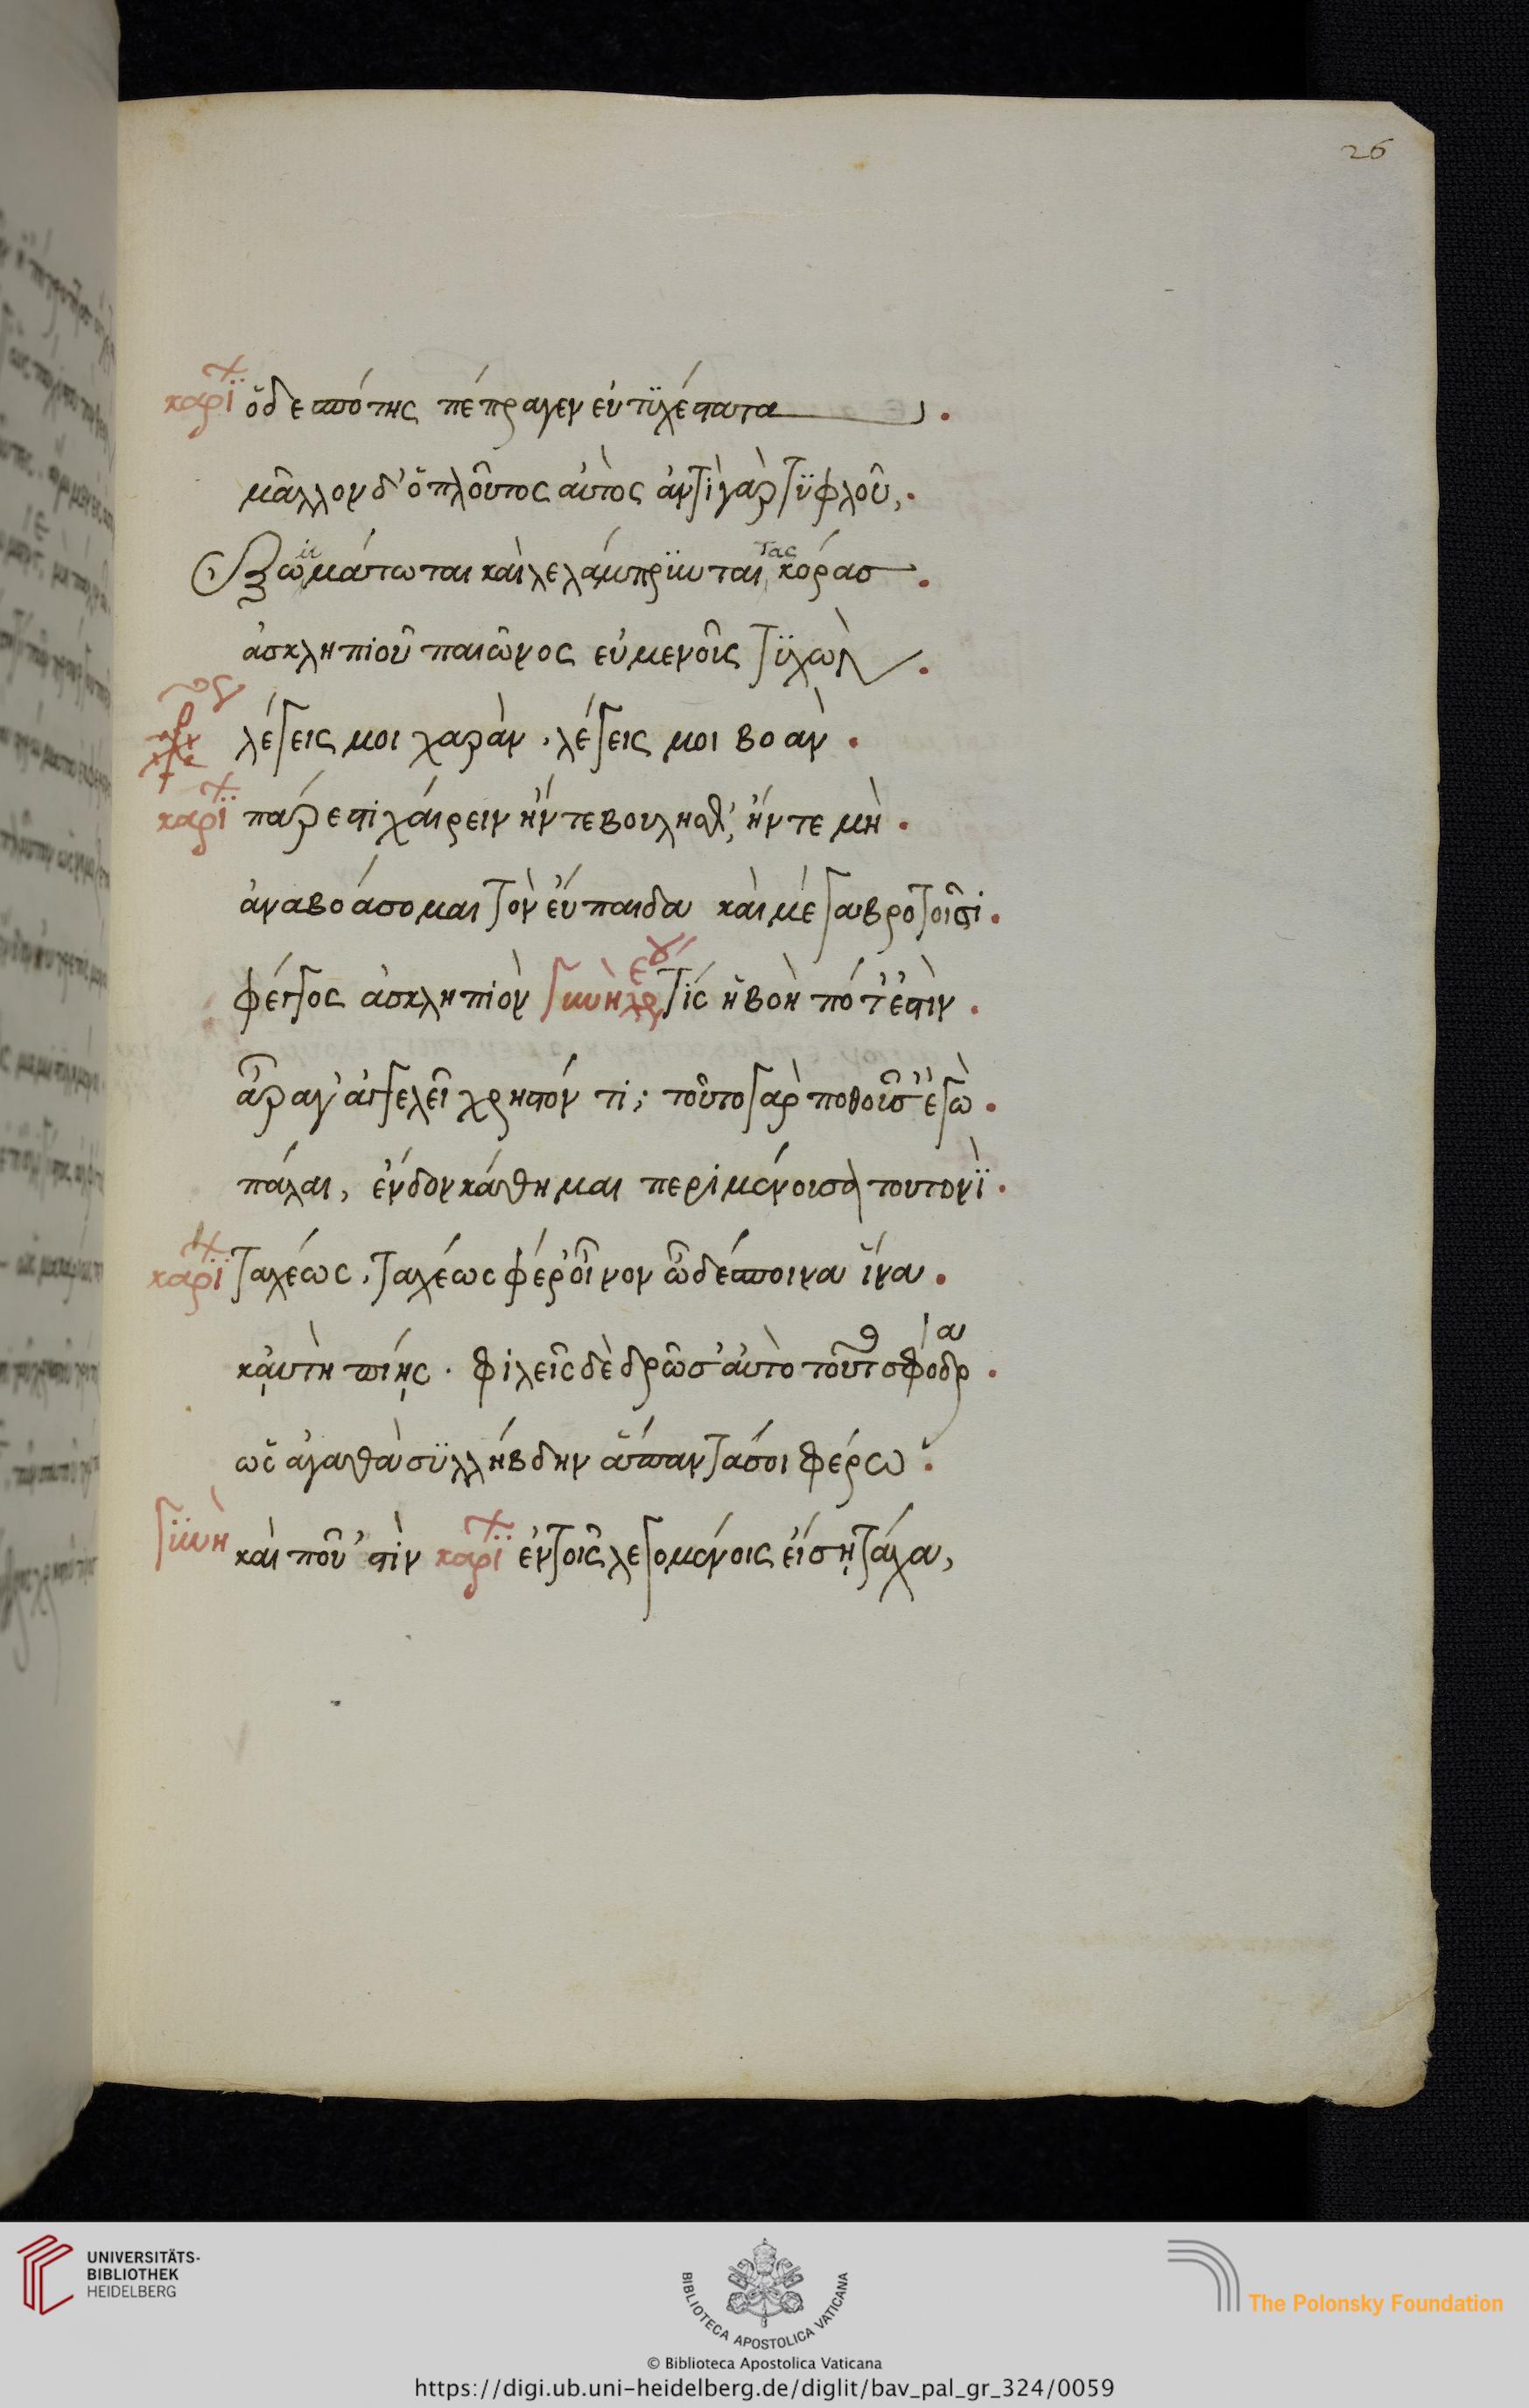 26
καρΐ ὁ δεσπότης πέπραγεν εὐτϋχέστατα.
μᾶλλον δ' ὁ πλοῦτος αὐτὸς ἀντὶ γὰρ τϋφλοῦ,
ἐξωμμάτωται καὶ λελάμπρϋνται τὰς κόρας.
ἀσκληπιοῦ παιῶνος εὐμενοῦς τϋχὼν.
λέγεις μοι χαρὰν, λέγεις μοι βοὰν.
καρΐ πάρεστι χαίρειν ἤν τε βούλησθ', ἤν τε μὴ.
ἀναβοάσομαι τὸν εὔπαιδα καὶ μέγα βροτοῖσι.
φέγγος ἀσκληπιὸν γϋνὴ χρ τίς ἡ βοὴ πότ' ἐστὶν.
ἆρά γ' ἀγγελεῖ χρηστόν τι; τοῦτο γὰρ ποθοῦσ' ἐγὼ.
πάλαι, ἔνδον κάθημαι περιμένουσα τουτονΐ.
καρΐ ταχέως, ταχέως φέρ' οἶνον ὦ δέσποινα ἵνα.
καὐτὴ πίῃς. φιλεῖς δὲ δρῶσ' αὐτὸ τοῦτο σφόδρα.
ὡς ἀγαθὰ σϋλλήβδην ἅπαντά σοι φέρω.
γϋνὴ καὶ ποῦ 'στὶν καρΐ ἐν τοῖς λεγομένοις εἴσῃ τάχα,
UNIVERSITÄTS-
BIBLIOTHEK
HEIDELBERG
BIBLIOTECA APOSTOLICA VATICANA
The Polonsky Foundation
© Biblioteca Apostolica Vaticana
https://digi.ub.uni-heidelberg.de/diglit/bav_pal_gr_324/0059